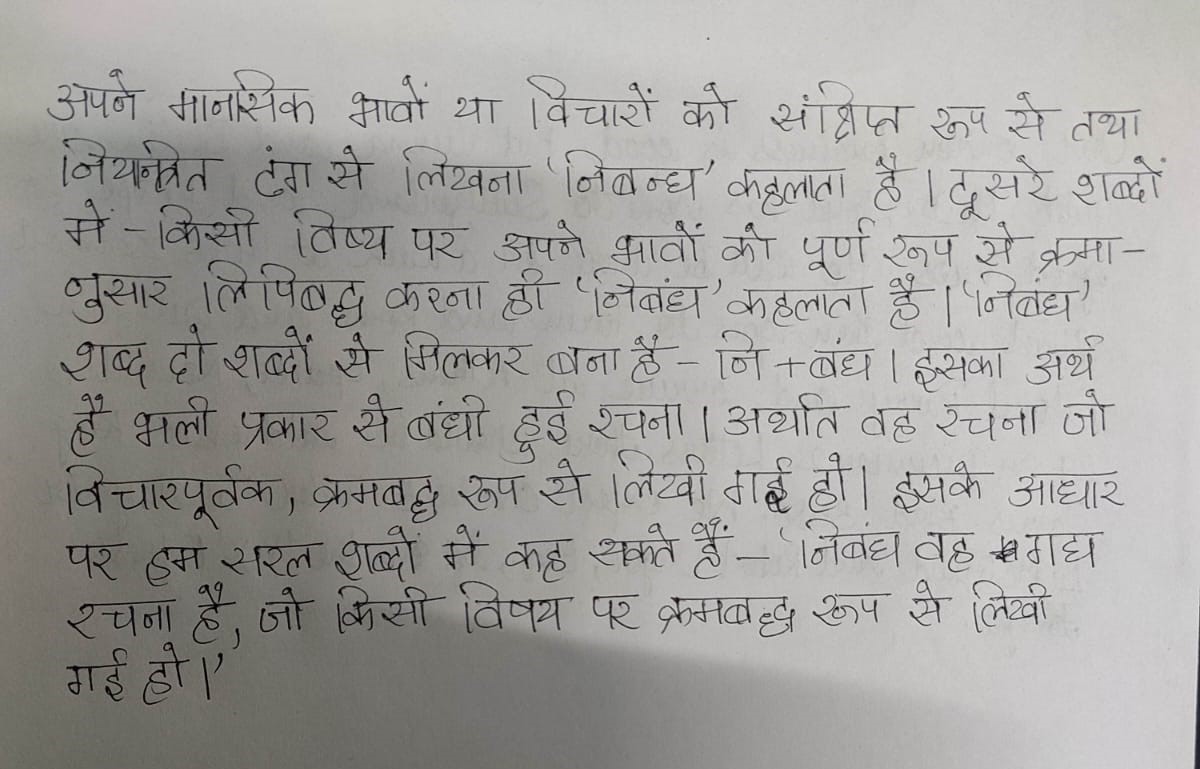 अपने मानसिक भावों या विचारों को संक्षिप्त रूप से तथा
नियन्त्रित ढंग से लिखना 'निबन्ध' कहलाता है। दूसरे शब्दों
में - किसी विष्य पर अपने भावों को पूर्ण रूप से क्रमा-
नुसार लिपिबद्ध करना ही 'निबंध' कहलाता है। 'निबंध'
शब्द दो शब्दों से मिलकर बना है - नि + बंध। इसका अर्थ
है भली प्रकार से बंधी हुई रचना। अर्थात वह रचना जो
विचारपूर्वक, क्रमबद्ध रूप से लिखी गई हो। इसके आधार
पर हम सरल शब्दों में कह सकते हैं - 'निबंध वह गद्य
रचना है, जो किसी विषय पर क्रमबद्ध रूप से लिखी
गई हो।'